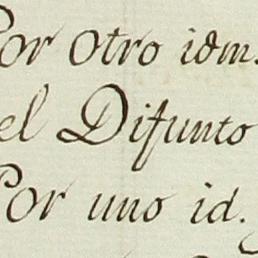 Por otro idm.
el Difunto
Por uno id.